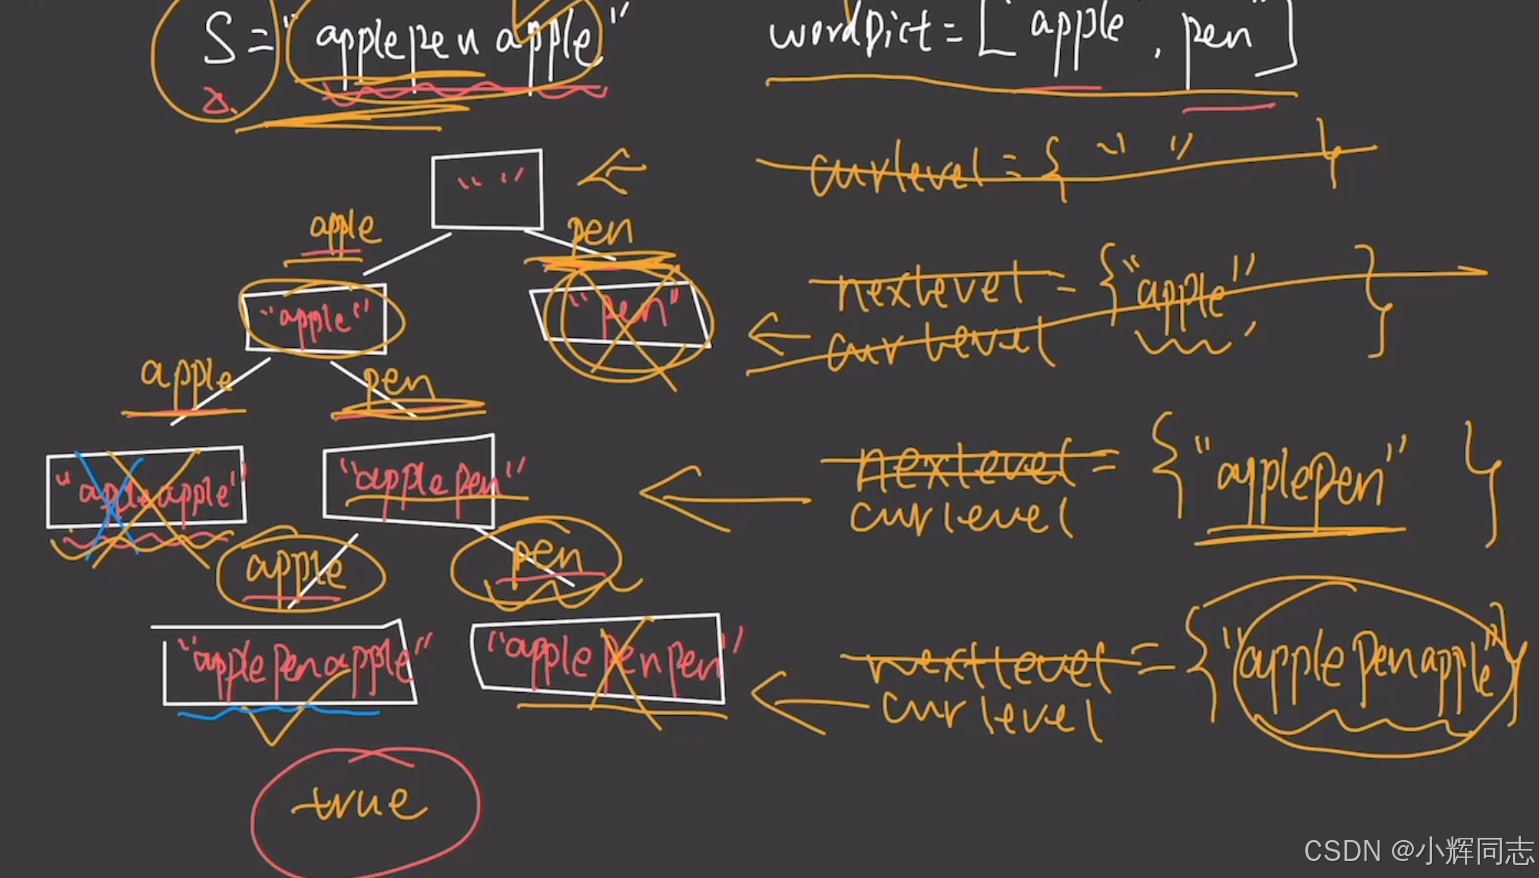 S = "applepenapple"
wordDict = ["apple", pen"]
" "
curlevel = { " " }
apple
pen
"apple"
"pen"
nextlevel = {"apple" }
curlevel
apple
pen
"appleapple"
"applepen"
nextlevel = { "applepen" }
curlevel
apple
pen
"applepenapple"
"applepenpen"
nextlevel = {"applepenapple"}
curlevel
true
CSDN @小辉同志